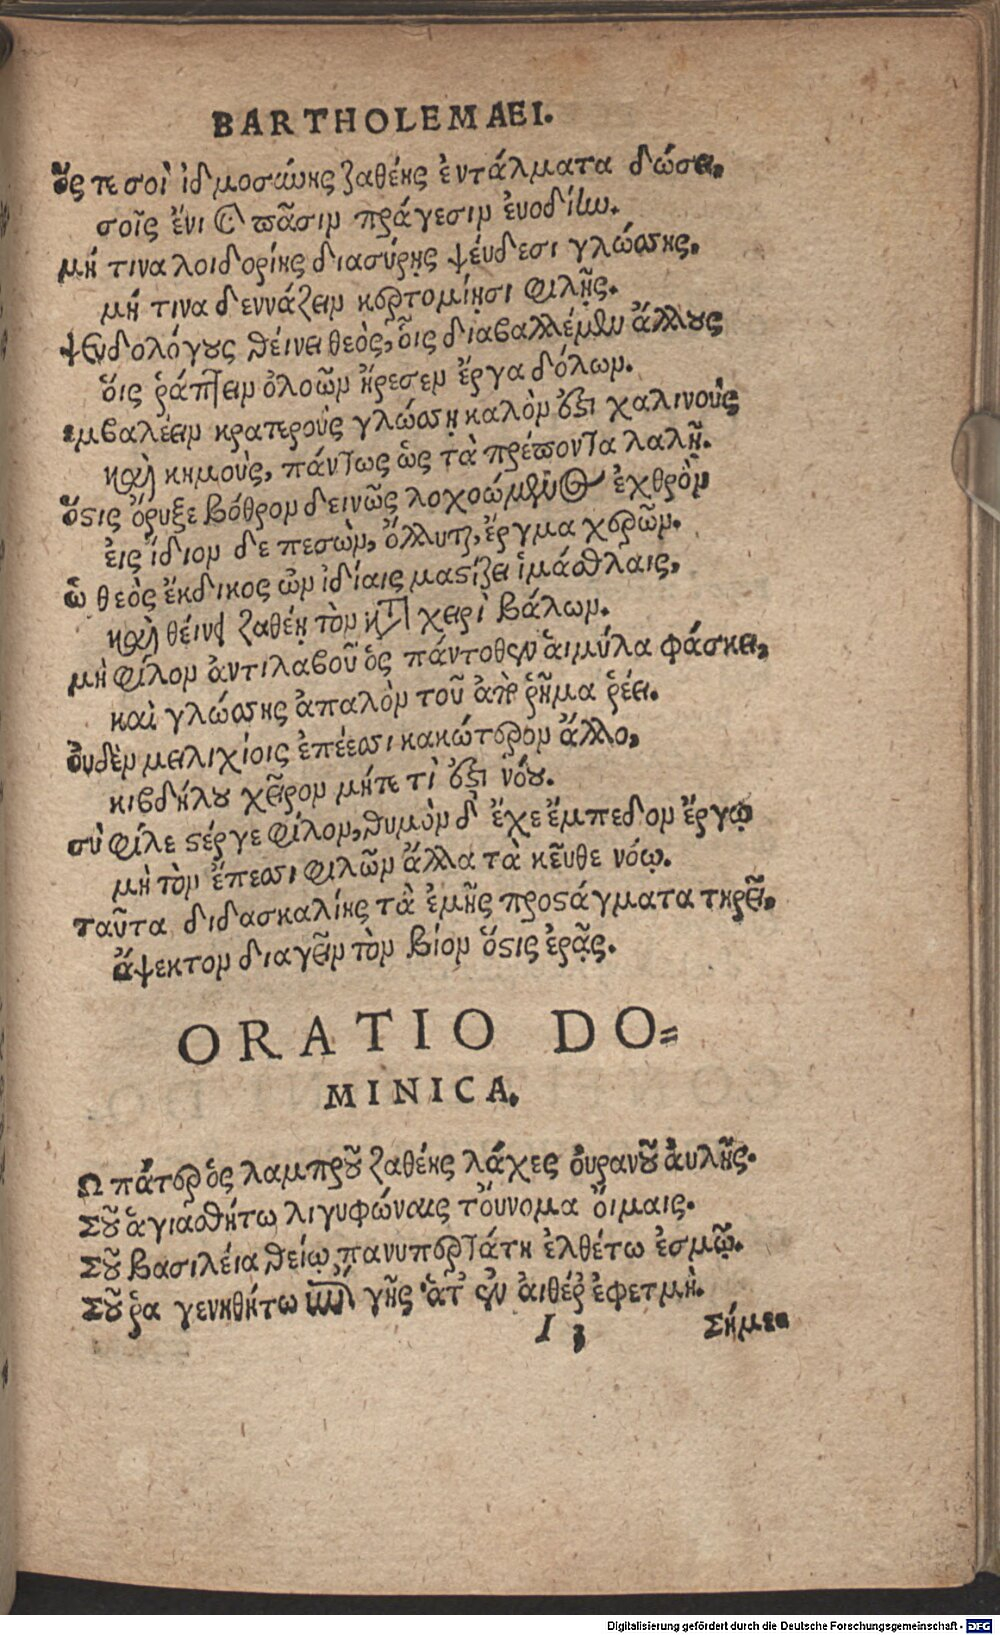 BARTHOLEMAEI.
ὅς τε σοὶ ἰδμοσύνης ζαθέης ἐντάλματα δώσει,
σοῖς ἔνι καὶ πᾶσιν πράγεσιν ἐυοδίην.
μή τινα λοιδορίης διασύρῃς ψέυδεσι γλώσσης,
μή τινα δεννάζειν κερτομίῃσι φιλῇς.
ψευδολόγους θείνει θεὸς, οἷς διαβαλλέμεν ἄλλους
ὅις ῥάπτειν ὀλοῶν ἤρεσεν ἔργα δόλων.
εμβαλέειν κρατεροὺς γλώσσῃ καλὸν ὅστι χαλινοὺς
καὶ κημοὺς, πάντως ὡς τὰ πρέποντα λαλῇ.
ὅστις ὄρυξε βόθρον δεινῶς λοχοώμενος ἐχθρὸν
ἐις ἴδιον δε πεσὼν, ὄλλυται, ἔργμα χερῶν.
ὦ θεὸς ἔκδικος ὢν ἰδίαις μαστίζει ἱμάσθλαις,
καὶ θείνει ζαθέῃ τὸν κατὰ χειρὶ βάλων.
μὴ φίλον ἀντιλαβοῦ ὃς πάντοθεν ἁιμύλα φάσκει,
καὶ γλώσσης ἁπαλὸν τοῦ ἀπὸ ῥῆμα ῥέει.
ὀυδὲν μειλιχίοις ἐπέεσσι κακώτερον ἄλλο,
κιβδήλου χεῖρον μήτε τὶ ὅστι νόου.
σὺ φίλε στέργε φίλον, θυμὸν δ' ἔχε ἔμπεδον ἔργῳ
μὴ τὸν ἔπεσσι φιλῶν ἄλλα τὰ κεῦθε νόῳ.
ταῦτα διδασκαλίης τὰ ἐμῆς προστάγματα τηρεῖν,
ἄψεκτον διαγεῖν τὸν βίον ὅστις ἐρᾷς.
ORATIO DO=
MINICA.
Ω πάτερ ὃς λαμπροῦ ζαθέης λάχες ὀυρανοῦ ἀυλῆς.
Σοῦ ἁγιασθήτω λιγυφώναις τὄυνομα ὄιμαις.
Σοῦ βασιλέια θείῳ πανυπερτάτη ἐλθέτω ἐσμῷ.
Σοῦ ῥα γενηθήτω ἐπὶ γῆς ἅτ' ἐν ἀιθέρ' ἐφετμὴ.
I 3 Σήμε